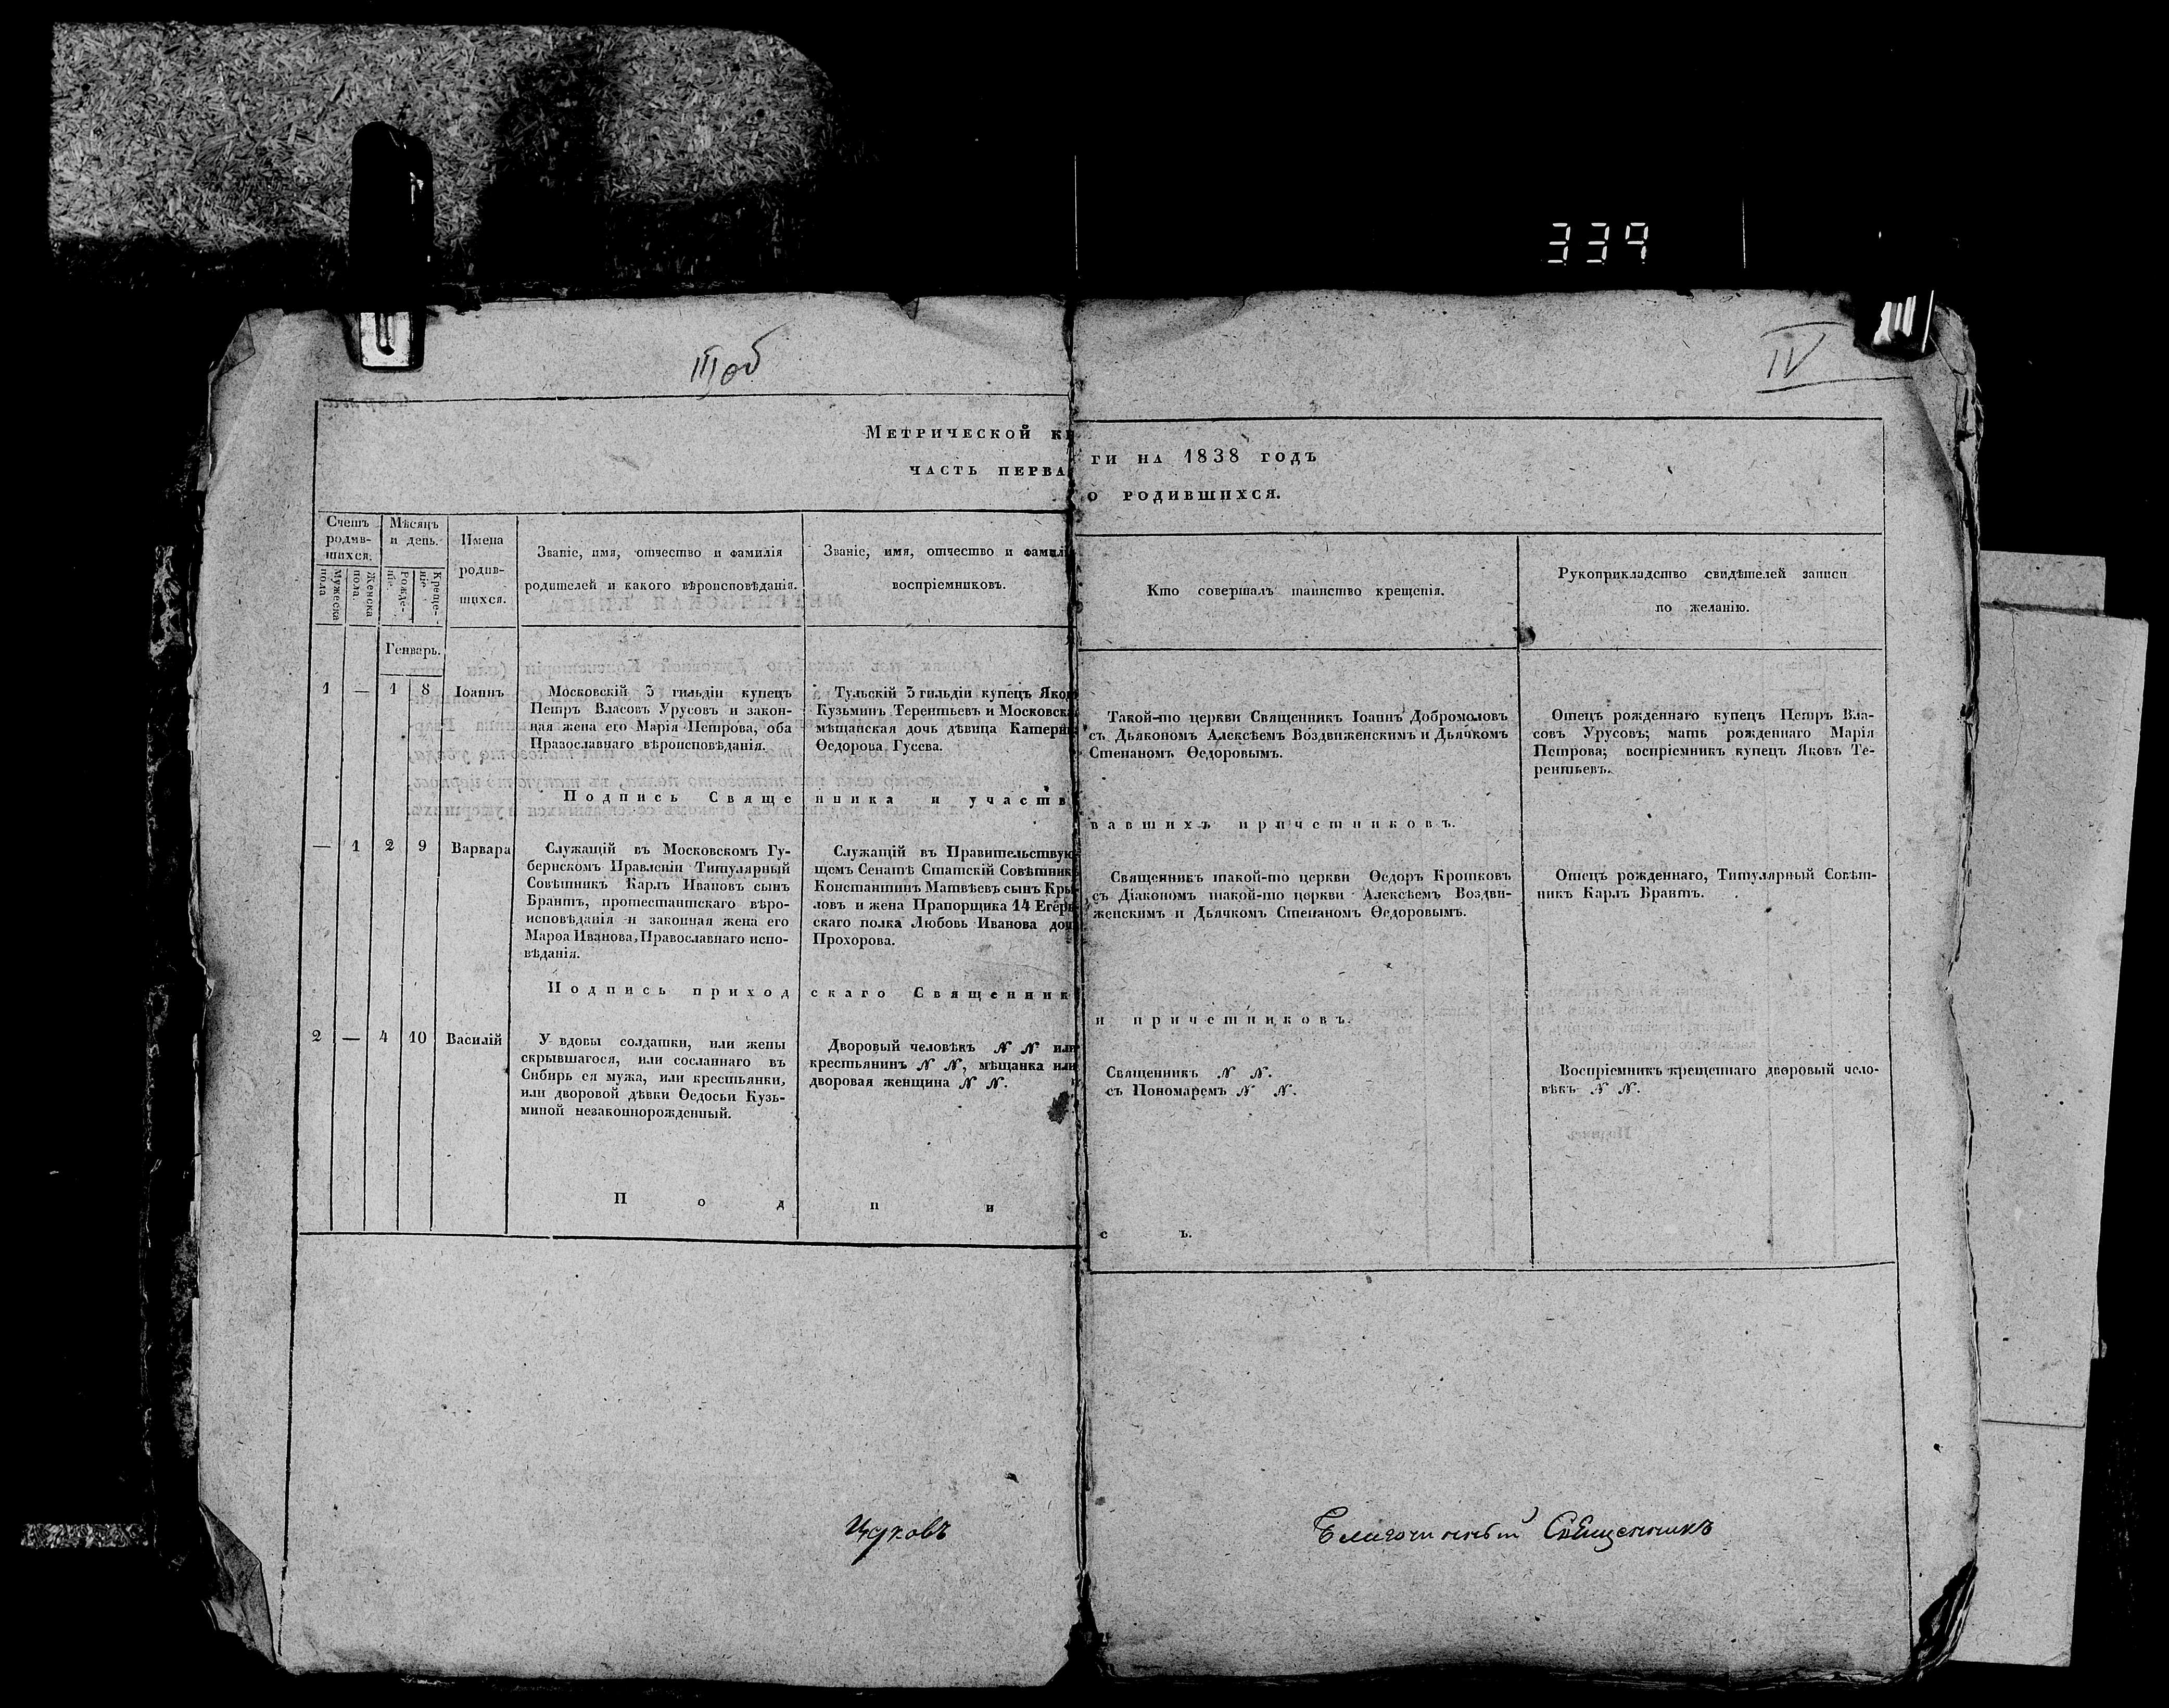 339
III об
IV
Метрической кн
ги на 1838 годъ
часть перва
о родившихся.
Счетъ
родив-
шихся.
Мужеска
пола
Женска
пола.
Мѣсяцъ
и день.
Рожде-
ніе.
Креще-
ніе.
Имена
родив-
шихся.
Званіе, имя, отчество и фамилія
родителей и какого вѣроисповѣданія.
Званіе, имя, отчество и фамилі
воспріемниковъ.
Кто совершалъ таинство крещенія.
Рукоприкладство свидѣтелей записи
по желанію.
Генварь.
1 — 1 8 Іоаннъ
Московскій 3 гильдіи купецъ
Петръ Власовъ Урусовъ и закон-
ная жена его Марія Петрова, оба
Православнаго вѣроисповѣданія.
Тульскій 3 гильдіи купецъ Яко
Кузьминъ Терентьевъ и Московска
мѣщанская дочь дѣвица Катери
Ѳедорова Гусева.
Такой-то церкви Священникъ Іоаннъ Добромоловъ
съ Дьякономъ Алексѣемъ Воздвиженскимъ и Дьячкомъ
Степаномъ Ѳедоровымъ.
Отецъ рожденнаго купецъ Петръ Вла-
совъ Урусовъ; мать рожденнаго Марія
Петрова; воспріемникъ купецъ Яковъ Те-
рентьевъ.
Подпись Свяще нника и участв
вавшихъ причетниковъ.
— 1 2 9 Варвара
Служащій въ Московскомъ Гу-
бернскомъ Правленіи Титулярный
Совѣтникъ Карлъ Ивановъ сынъ
Брантъ, протестантскаго вѣро-
исповѣданія и законная жена его
Марѳа Иванова, Православнаго испо-
вѣданія.
Служащій въ Правительствую
щемъ Сенатѣ Статскій Совѣтник
Константинъ Матвѣевъ сынъ Кры
ловъ и жена Прапорщика 14 Егер
скаго полка Любовь Иванова доч
Прохорова.
Священникъ такой-то церкви Ѳедоръ Крошковъ
съ Діакономъ такой-то церкви Алексѣемъ Воздви-
женскимъ и Дьячкомъ Степаномъ Ѳедоровымъ.
Отецъ рожденнаго, Титулярный Совѣт-
никъ Карлъ Брантъ.
Подпись приход скаго Священник
и причетниковъ.
2 — 4 10 Василій
У вдовы солдатки, или жены
скрывшагося, или сосланнаго въ
Сибирь ея мужа, или крестьянки,
или дворовой дѣвки Ѳедосьи Кузь-
миной незаконнорожденный.
Дворовый человѣкъ N N или
крестьянинъ N N, мѣщанка или
дворовая женщина N N.
Священникъ N N.
съ Пономаремъ N N.
Воспріемникъ крещеннаго дворовый чело-
вѣкъ N N.
П о д п и
с ъ.
Благочинный Священникъ